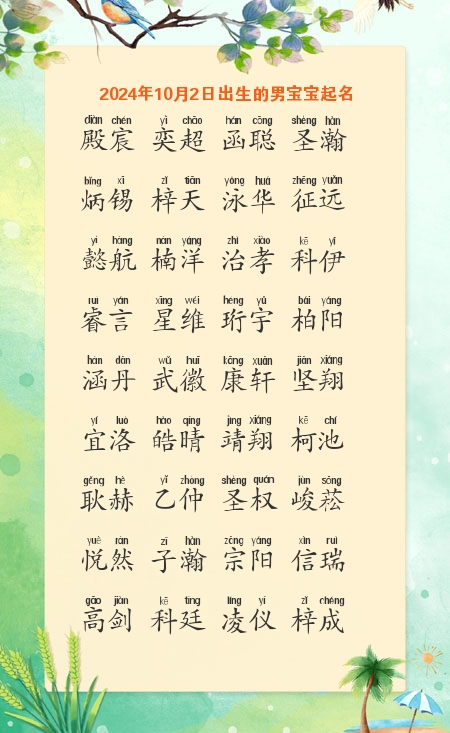 2024年10月2日出生的男宝宝起名
diàn chén yì chāo hán cōng shèng hàn
殿宸 奕超 函聪 圣瀚
bǐng xī zǐ tiān yǒng huá zhēng yuǎn
炳锡 梓天 泳华 征远
yì háng nán yáng zhì xiào kē yī
懿航 楠洋 治孝 科伊
ruì yán xīng wéi héng yǔ bǎi yáng
睿言 星维 珩宇 柏阳
hán dān wǔ huī kāng xuān jiān xiáng
涵丹 武徽 康轩 坚翔
yí luò hào qíng jìng xiáng kē chí
宜洛 皓晴 靖翔 柯池
gěng hè yǐ zhòng shèng quán jùn sōng
耿赫 乙仲 圣权 峻菘
yuè rán zǐ hàn zōng yáng xìn ruì
悦然 子瀚 宗阳 信瑞
gāo jiàn kē tíng líng yí zǐ chéng
高剑 科廷 凌仪 梓成